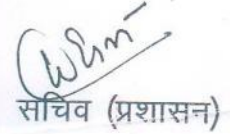 सचिव (प्रशासन)